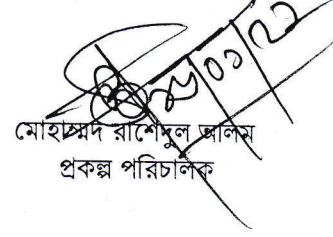 মোহাম্মদ রাশেদুল আলিম
প্রকল্প পরিচালক